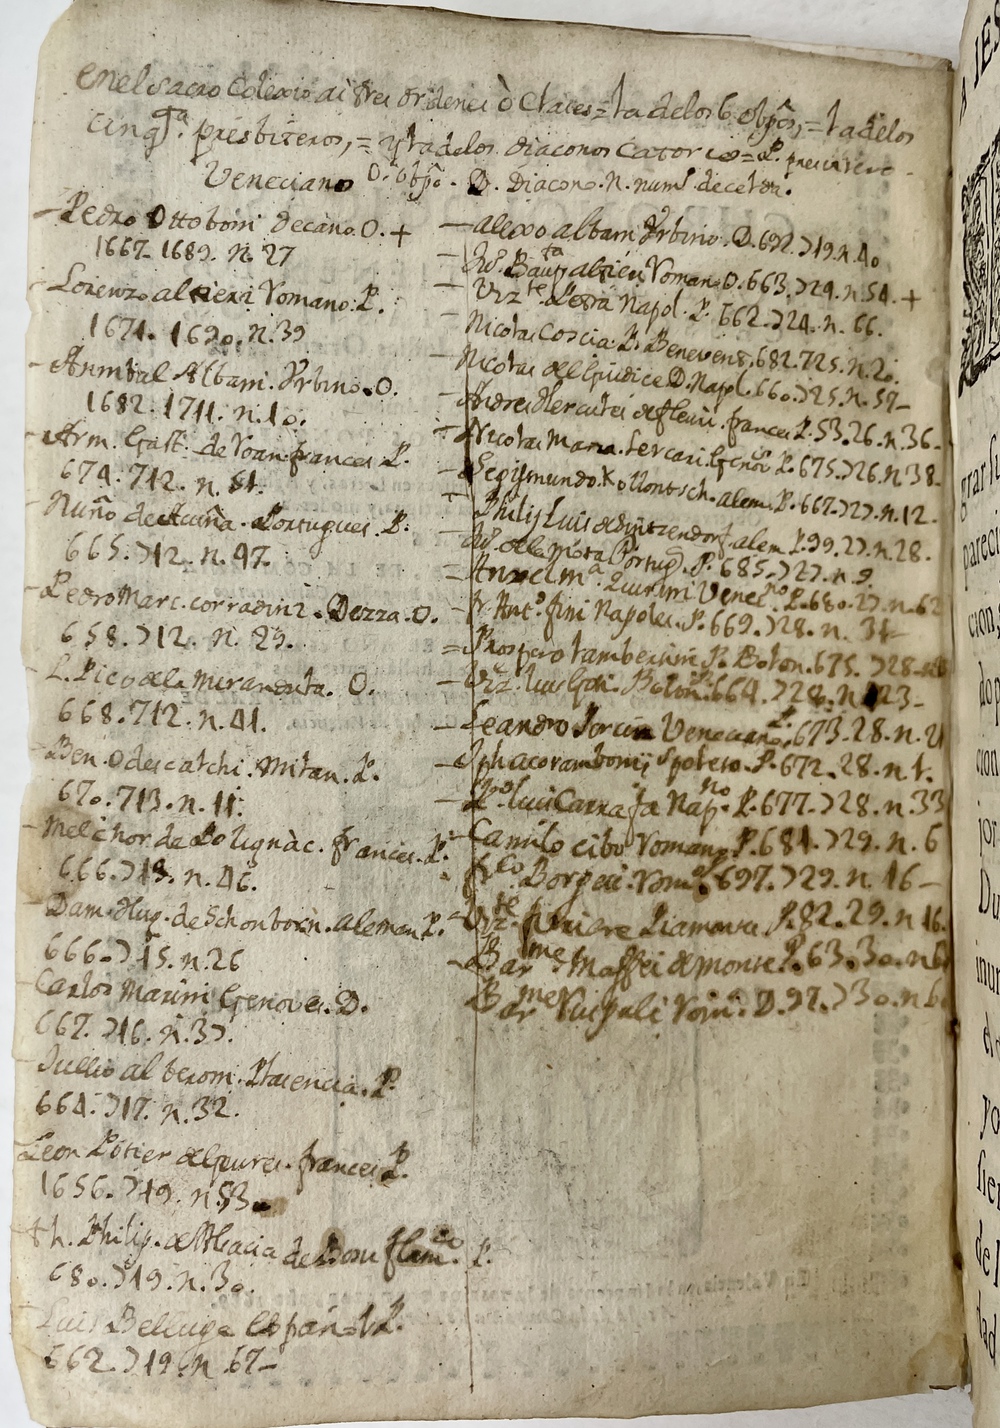 en el sacro Colegio ai tres ordenes ò Claces = la de los 6 obpõs, = la de los
cinqᵗᵃ. presbiteros, = y la de los diaconos Catorce = P. presvitero -
Veneciano O. obpõ. D. Diacono. N. numº de ceten.
- Pedro Ottoboni Decano. O. +
1667. 1689. n. 27
- Lorenzo altieri Romano. P.
1671. 1690. n. 39
- Annibal Albani. Vrbino. O.
1682. 1711. n. 10.
- Arm. Gast. de Roan. frances P.
674. 712. n. 51.
- Nuño de Acuña. Portugues. P.
665. 712. n. 47.
- Pedro Marc. corradini. Dezza. O.
658. 712. n. 29.
- L. Pico de la Mirandula. O.
668. 712. n. 41.
- Ben. Odescalchi. Milan. P.
670. 713. n. 11.
- Melchor de Polignàc. frances. P.
666. 713. n. 46.
- Dam. Hug. de Schonborn. aleman P.
666. 715. n. 26
- Carlos Marini Genoves. D.
667. 716. n. 37.
- Jullio alberoni. Placencia. P.
664. 717. n. 32.
Leon Potier de frances P.
1656. 719. n. 53.
th. Philip. de Alsacia de flamco. P.
680. 719. n. 30.
Luis Belluga Español P.
662. 719. n. 67 -
- alexo albani Vrbino. D. 692. 719. n. 40
- Ju. Bautᵗᵃ altieri Roman. O. 663. 724. n. 54. +
- Vizᵗᵉ Petra Napol. P. 662. 724. n. 66.
- Nicolas Coscia. P. Benevent. 682. 725. n. 20.
- Nicolas del Giudice D. Napl. 660. 725. n. 57 -
- Andres Hercules de fleuri. frances P. 53. 26. n. 36 -
- Nicolas Maria. Lercari. Genõv. P. 675. 726. n. 38 -
- Segismundo. Kollonitsch. alem. P. 667. 727. n. 12 -
- Philip Luis de Sintzendorf. alem P. 99. 27. n. 28.
- Ju. de la Mota Portug. P. 685. 727. n. 9.
= Angel mᵃ. Quirini Venecⁿᵒ. P. 680. 27. n. 62
- fr. Antº. fini Napoles. P. 669. 728. n. 31 -
= Prospero lambertini P. Bolon. 675. 728
- Viz. luis Goti. Bolon. P. 664. 728. n. 23 -
- Leandro Porcia Veneciano. P. 673. 28. n. 21
- Spoleto. P. 672. 28. n. 1.
- Pº luis Carrafa Napⁿᵒ. P. 677. 728. n. 33
- Camilo cibo Romano P. 684. 729. n. 6
- frᶜᵒ. Borgesi. Romⁿᵒ. 697. 729. n. 16 -
- Vizᵗᵉ. ferrere Piamonte P. 82. 29. n 16.
- Barᵐᵉ. Maffei de monte P. 63. 30. n
- Barᵐᵉ Rom. D. 97. 730. n